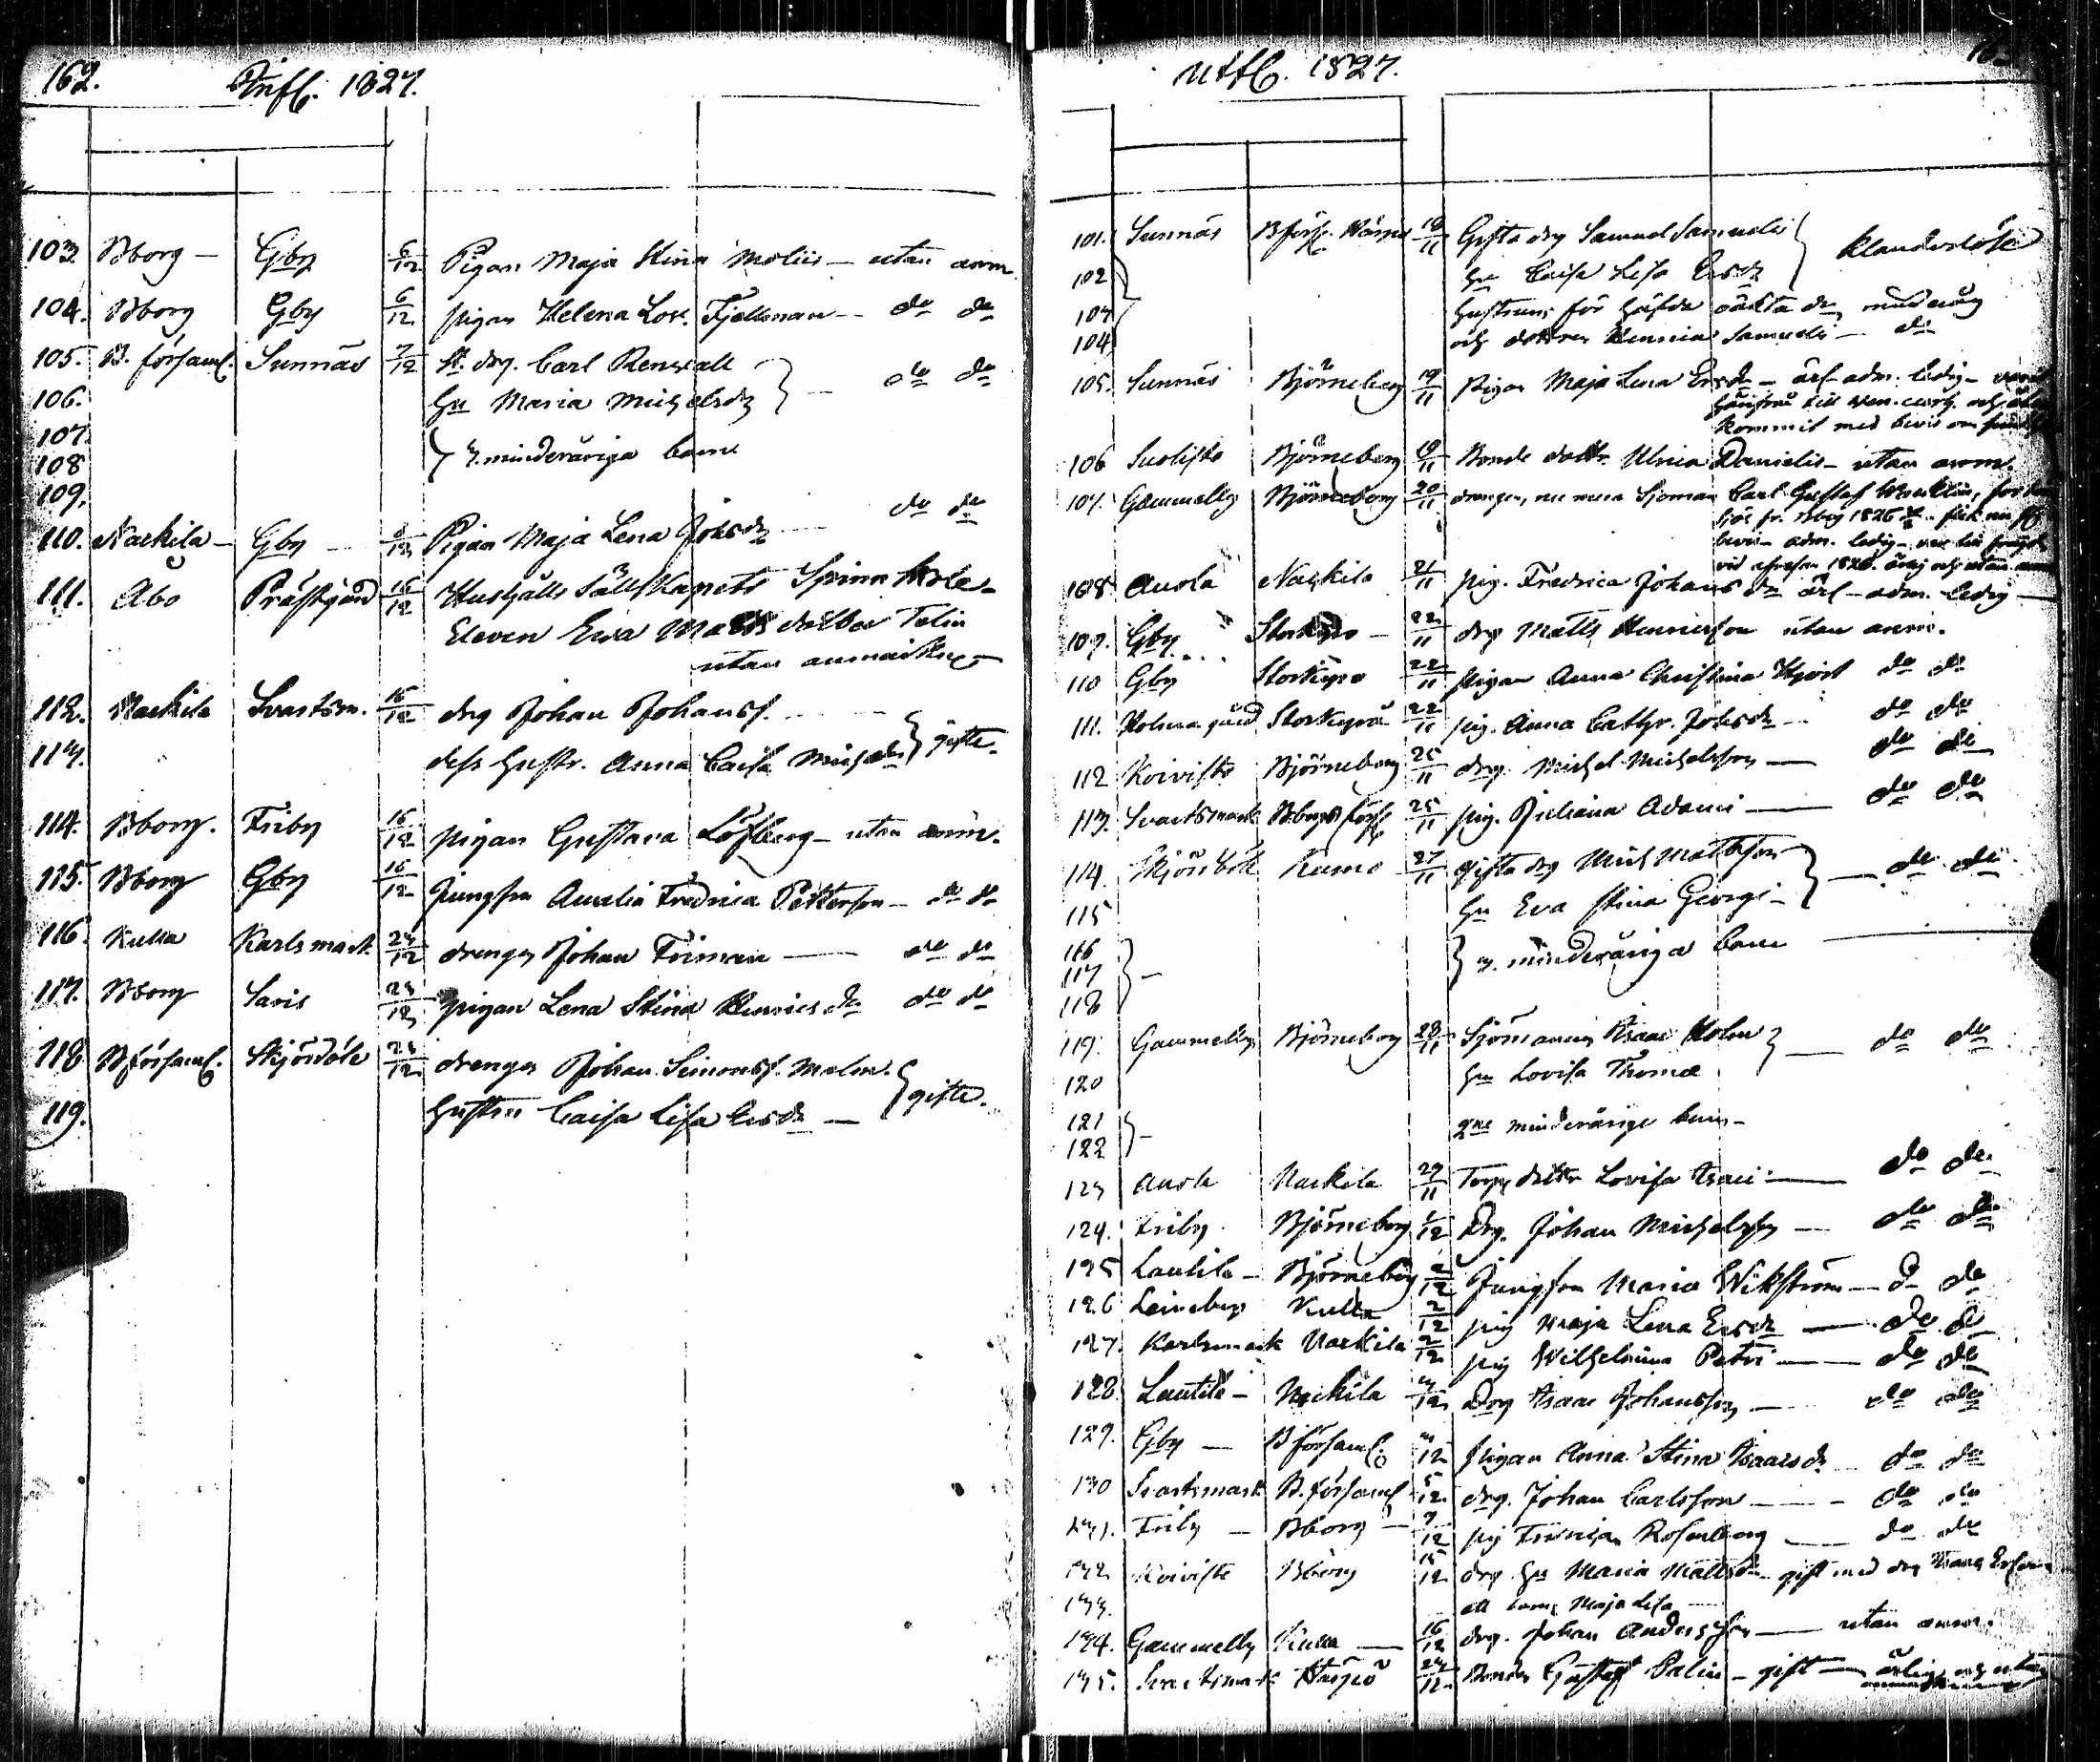 162. Infl. 1827.
103. Bborg - Gby 6/12 Pigan Maja Stina Moliis - utan anm.
104. Bborg Gby 6/12 pigan Helena Lov. Fjellman - do do
105. B. församl. Sunnäs 7/12 drg. Carl Renvall
106. Hu Maria Michelsdr } do do
107
108 } 3. minderåriga barn
109.
110. Nackila - Gby /12 Pigan Maja Lena Johsdr do do
111. Åbo Prästgård 15/12 Hushålls Sällskapets Spinn Skole-
Eleven Eva Matts dotter Tolin
utan anmärkng
112. Nackila Svartsm. 15/12 drg Johan Johanss.
113. dess hustr. Anna Caisa Michelsdr } gifte.
114. Bborg. Friby 16/12 pigan Gustava Löfberg - utan anm.
115. Bborg Gby 16/12 Jungfru Aurelia Fredrica Petterson - do do
116. Kulla Karlsmark 23/12 drengen Johan Friman - do do
117. Bborg Saris 23/12 pigan Lena Stina Henricsdr do do
118 B församl. Skjördöle 23/12 drengen Johan Simonss. Malm.
119. Hustru Caisa Lisa Ersdr - } gifte.
Utfl. 1827.
101. Sunnäs B förs. 19/11 Gifta drg Samuel Samuels
102 Hu Caisa Lisa Ersdr } klanderlöse
103 Hustruns för oäkta
104 och dottren Hennica Samuels - do
105. Sunnäs Björneborg 19/11 Pigan Maja Lena Ersdr - ärl - adm. ledig -
kommit med bevis om
106 Suolisto Björneborg 19/11 Bonde dottr. Ulrica Danielis - utan anm.
107. Gammelby Björneborg 20/11 drengen, nu mera Sjöman Carl Gustaf
Bborg 1826
bevis - adm. ledig -
108 Anola Nackila 21/11 pig. Fredrica Johansdr ärl - adm. ledig
109. Gby Storkyro - 22/11 drg Matts Henricsson utan anm.
110 Gby Storkyro 22/11 pigan Anna Christina Hjort do do
111. Holma gård Storkyro 22/11 pig. Anna Cathr. Johsdr - do do
112 Koivisto Björneborg 25/11 drg. Michel Michelsson - do do
113. Svartsmark Bborgs förs 25/11 pig. Juliana Adami - do do
114. Kumo 27/11 gifta drg Mich Mattsson
115 Hu Eva Stina Georgi - } do do
116
117 } 3. minderåriga barn
118
119. Gammelby Björneborg 28/11 Sjömannen Isaac Holm
120 Hu Lovisa Thomæ } do do
121 2ne minderårige barn -
122
123 Anola Nackila 29/11 Torp dottr Lovisa Isaci - do do
124. Friby Björneborg 1/12 Drg. Johan Michelsson - do do
125 Lautila - Björneborg 2/12 Jungfru Maria Wikström - do do
126 Leineberg Kulla 2/12 pig Maja Lena Ersdr - do do
127. Karlsmark Nackila 2/12 pig Wilhelmina Petri - do do
128. Lautila - Nackila 3/12 Drg Isaac Johansson - do do
129. Gby - B församl. 3/12 pigan Anna Stina Isaacsdr do do
130 Svartsmark B. församl 5/12 drg. Johan Carlsson - do do
131. Friby - Bborg - 7/12 pig Rosenberg - do do
132 Koivisto Bborg 15/12 drg Hu Maria Mattsdr - gift med drg Isaac
133. ett barn Maja Lisa
134. Gammelby Kulla - 16/12 drg. Johan Andersson - utan anm.
135. Svartsmark 24/12 Bonden Gustaf Palin - gift - ärlig och utan